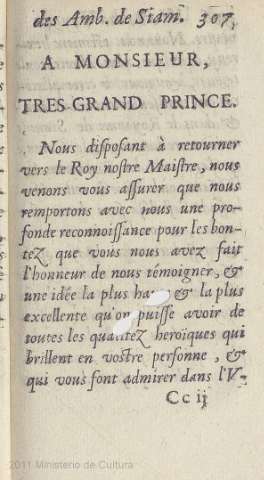 des Amb. de Siam. 307
A MONSIEUR,
TRES-GRAND PRINCE.
Nous disposant à retourner
vers le Roy nostre Maistre, nous
venons vous assurer que nous
remportons avec nous une pro-
fonde reconnoissance pour les bon-
tez que vous nous avez fait
l'honneur de nous témoigner, &
une idée la plus & la plus
excellente qu'on puisse avoir de
toutes les qualitez heroïques qui
brillent en vostre personne, &
qui vous font admirer dans l'V-
Cc ij
2011 Ministerio de Cultura